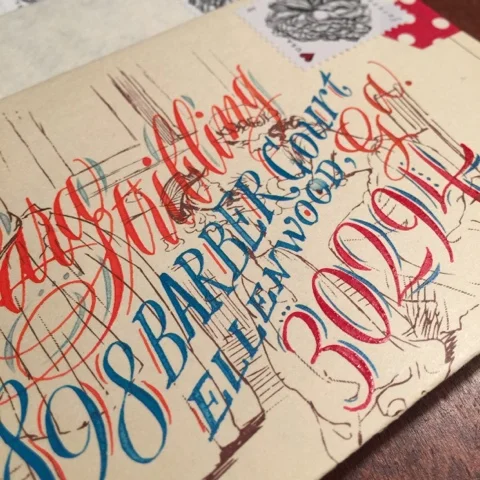 898 BARBER Court
ELLENWOOD, Ga.
30294